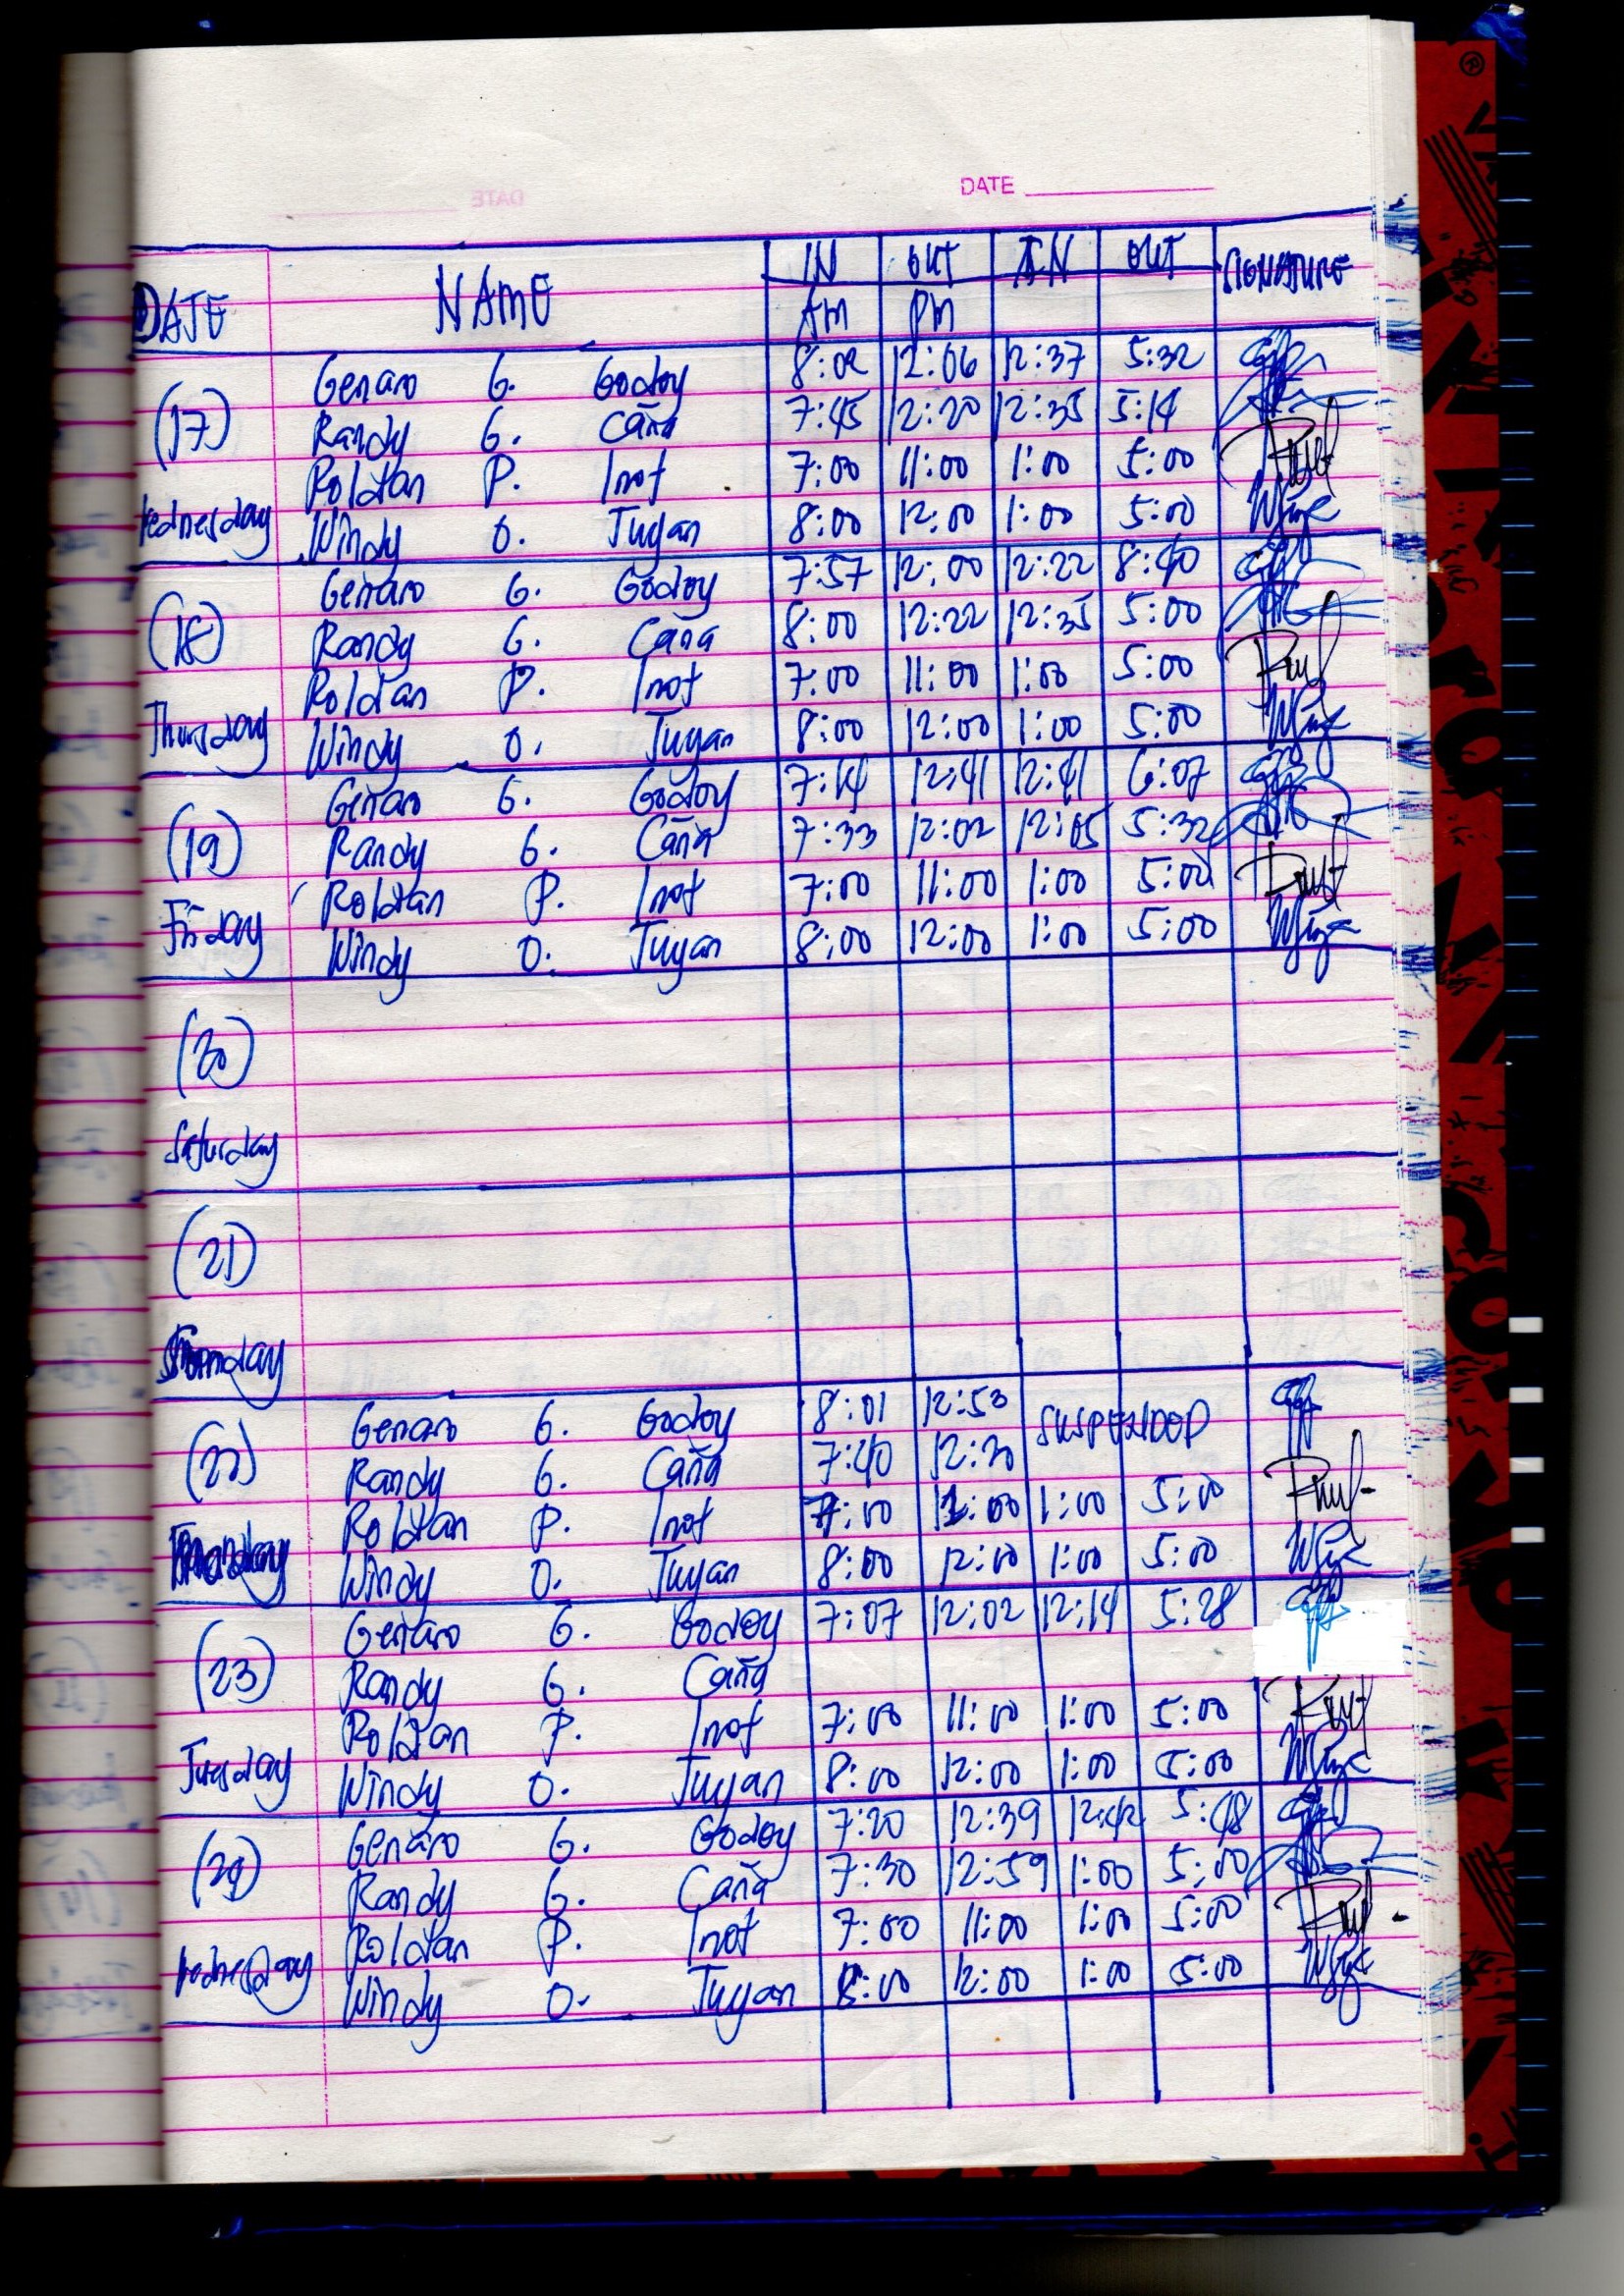 DATE
DATE NAME IN OUT IN OUT SIGNATURE
AM PM
Genaro G. Godoy 8:02 12:06 12:37 5:32
(17) Randy G. Caña 7:45 12:20 12:35 5:14
Roldan P. Inot 7:00 11:00 1:00 5:00
Wednesday Windy O. Tuyan 8:00 12:00 1:00 5:00
Genaro G. Godoy 7:57 12:00 12:22 8:40
(18) Randy G. Caña 8:00 12:22 12:35 5:00
Roldan P. Inot 7:00 11:00 1:00 5:00
Thursday Windy O. Tuyan 8:00 12:00 1:00 5:00
Genaro G. Godoy 7:14 12:41 12:41 6:07
(19) Randy G. Caña 7:33 12:02 12:05 5:32
Roldan P. Inot 7:00 11:00 1:00 5:00
Friday Windy O. Tuyan 8:00 12:00 1:00 5:00
(20)
Saturday
(21)
Genaro G. Godoy 8:01 12:53 SUSPENDED
(22) Randy G. Caña 7:40 12:30
Roldan P. Inot 7:00 1:00 5:00
Windy O. Tuyan 8:00 12:00 1:00 5:00
Genaro G. Godoy 7:07 12:02 12:14 5:28
(23) Randy G. Caña
Roldan P. Inot 7:00 11:00 1:00 5:00
Tuesday Windy O. Tuyan 8:00 12:00 1:00 5:00
Genaro G. Godoy 7:20 12:39 12:42 5:48
(24) Randy G. Caña 7:30 12:59 1:00 5:00
Roldan P. Inot 7:00 11:00 1:00 5:00
Wednesday Windy O. Tuyan 8:00 12:00 1:00 5:00